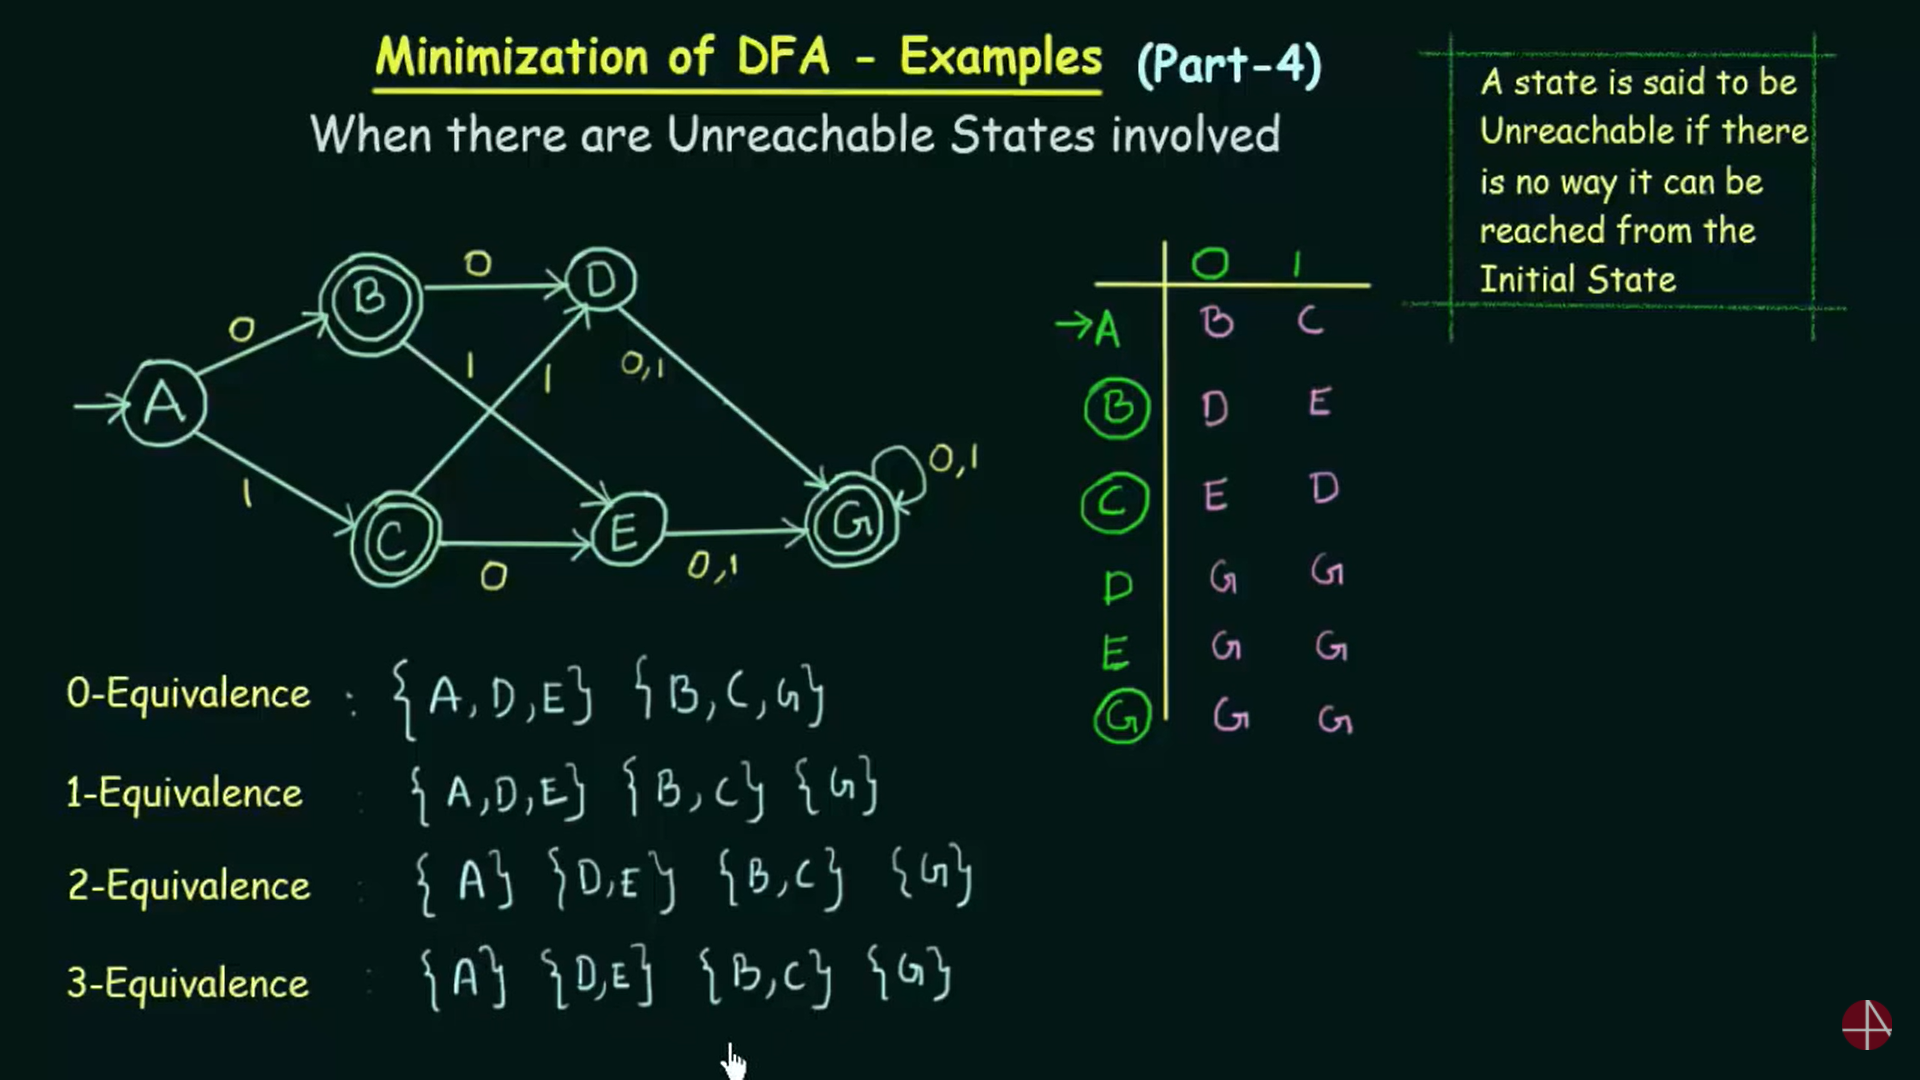 Minimization of DFA - Examples (Part-4)
When there are Unreachable States involved
A state is said to be
Unreachable if there
is no way it can be
reached from the
Initial State
A
0
1
B
0
1
C
1
0
D
0,1
E
0,1
G
0,1
0 1
→A B C
B D E
C E D
D G G
E G G
G G G
0-Equivalence : {A, D, E} {B, C, G}
1-Equivalence : {A, D, E} {B, C} {G}
2-Equivalence : {A} {D, E} {B, C} {G}
3-Equivalence : {A} {D, E} {B, C} {G}